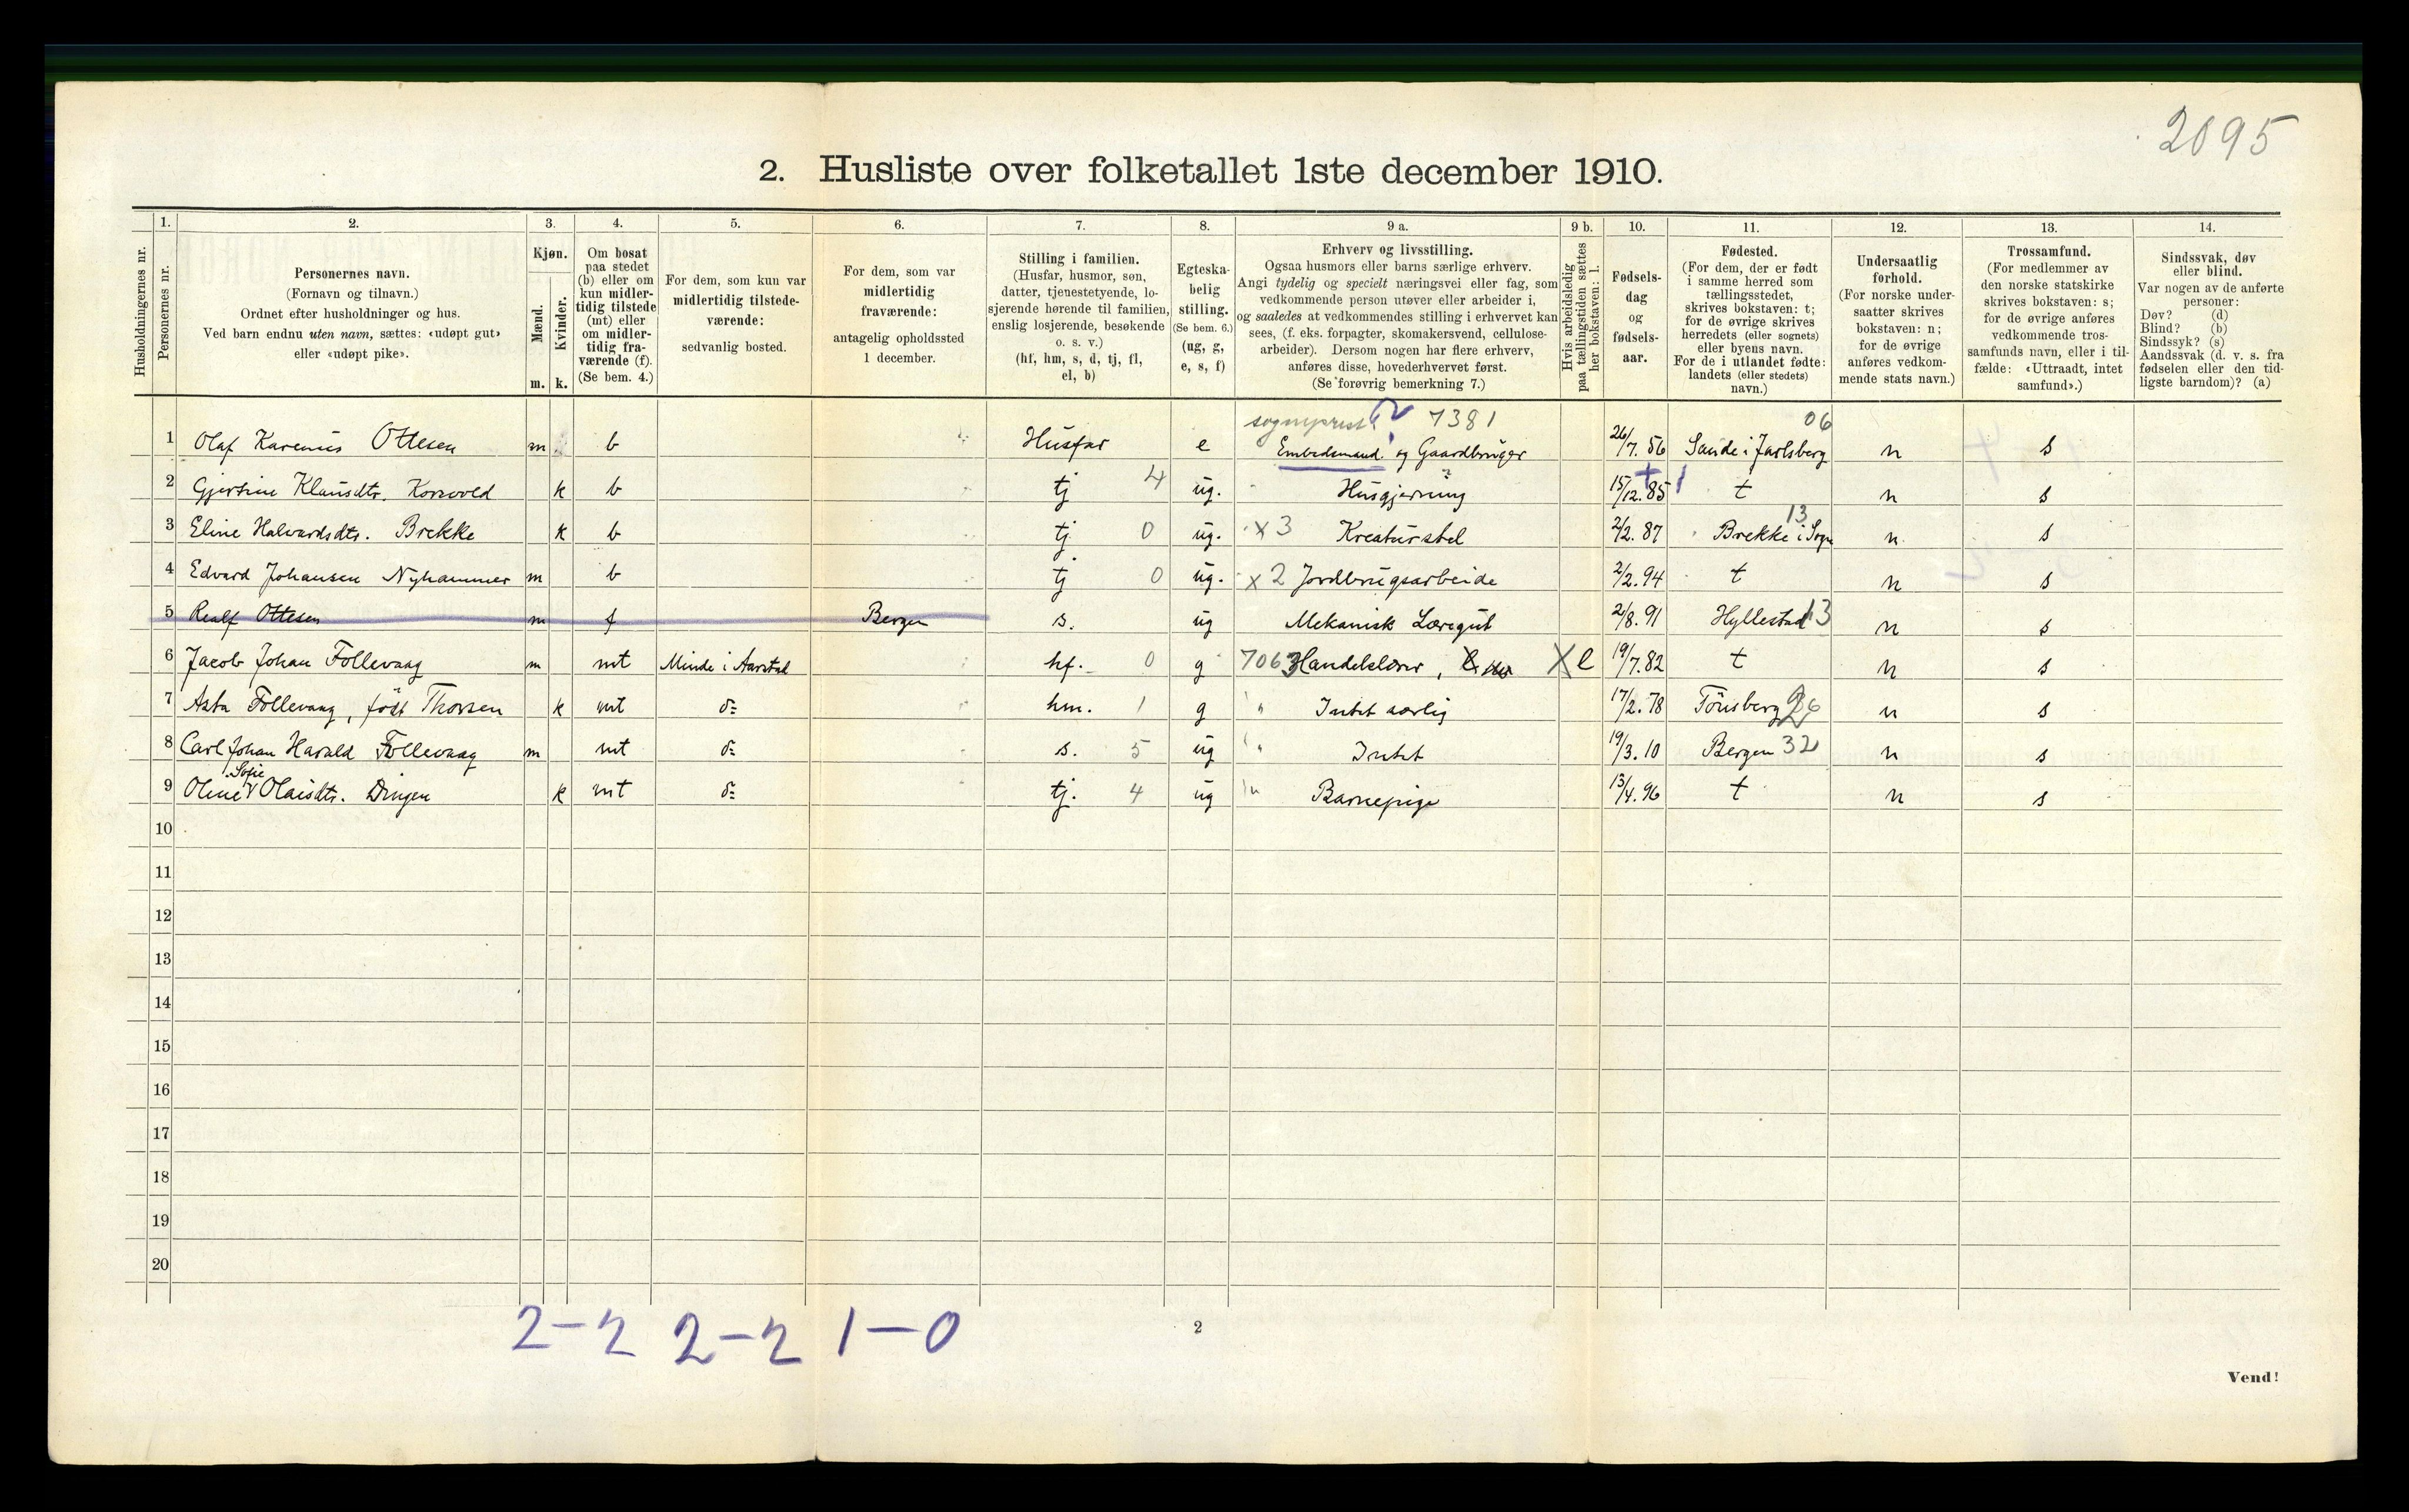 2095
2. Husliste over folketallet 1ste december 1910.
Husholdningernes nr.
1.
Personernes nr.
2.
Personernes navn.
(Fornavn og tilnavn.)
Ordnet efter husholdninger og hus.
Ved barn endnu uten navn, sættes: «udøpt gut»
eller «udøpt pike».
3.
Kjøn.
Mænd.
Kvinder.
m. k.
4.
Om bosat
paa stedet
(b) eller om
kun midler-
tidig tilstede
(mt) eller
om midler-
tidig fra-
værende (f).
(Se bem. 4.)
5.
For dem, som kun var
midlertidig tilstede-
værende:
sedvanlig bosted.
6.
For dem, som var
midlertidig
fraværende:
antagelig opholdssted
1 december.
7.
Stilling i familien.
(Husfar, husmor, søn,
datter, tjenestetyende, lo-
sjerende hørende til familien,
enslig losjerende, besøkende
o. s. v.)
(hf, hm, s, d, tj, fl,
el, b)
8.
Egteska-
belig
stilling.
(Se bem. 6.)
(ug, g,
e, s, f)
9 a.
Erhverv og livsstilling.
Ogsaa husmors eller barns særlige erhverv.
Angi tydelig og specielt næringsvei eller fag, som
vedkommende person utøver eller arbeider i,
og saaledes at vedkommendes stilling i erhvervet kan
sees, (f. eks. forpagter, skomakersvend, cellulose-
arbeider). Dersom nogen har flere erhverv,
anføres disse, hovederhvervet først.
(Se forøvrig bemerkning 7.)
9 b.
Hvis arbeidsledig
paa tællingstiden sættes
her bokstaven: l.
10.
Fødsels-
dag
og
fødsels-
aar.
11.
Fødested.
(For dem, der er født
i samme herred som
tællingsstedet,
skrives bokstaven: t;
for de øvrige skrives
herredets (eller sognets)
eller byens navn.
For de i utlandet fødte:
landets (eller stedets)
navn.)
12.
Undersaatlig
forhold.
(For norske under-
saatter skrives
bokstaven: n;
for de øvrige
anføres vedkom-
mende stats navn.)
13.
Trossamfund.
(For medlemmer av
den norske statskirke
skrives bokstaven: s;
for de øvrige anføres
vedkommende tros-
samfunds navn, eller i til-
fælde: «Uttraadt, intet
samfund».)
14.
Sindssvak, døv
eller blind.
Var nogen av de anførte
personer:
Døv? (d)
Blind? (b)
Sindssyk? (s)
Aandssvak (d. v. s. fra
fødselen eller den tid-
ligste barndom)? (a)
sogneprest 7381 06
1 Olaf Karenius Ottesen m b Husfar e Embedsmand og Gaardbruger 26/7. 56 Sande i Jarlsberg n s
2 Gjertine Klausdtr. Korsvold k b tj 4 ug. Husgjerning 15/12. 85 t n s
13
3 Eline Halvardsdtr. Brekke k b tj 0 ug. x 3 Kreaturstel 2/2. 87 Brekke i Sogn n s
4 Edvard Johansen Nyhammer m b tj 0 ug. x 2 Jordbrugsarbeide 2/2. 94 t n s
5 Realf Ottesen m f Bergen s. ug Mekanisk Læregut 2/8. 91 Hyllestad 13 n s
6 Jacob Johan Follevaag m mt Minde i Aarstad hf. 0 g 7063 Handelslærer, X l 19/7. 82 t n s
7 Asta Follevaag, født Thorsen k mt do hm. 1 g " Intet særlig 17/2. 78 Tönsberg 36 n s
8 Carl Johan Harald Follevaag m mt do s. 5 ug " Intet 19/3. 10 Bergen 32 n s
Sofie
9 Oline V Olaisdtr. Dingen k mt do tj. 4 ug " Barnepige 13/4. 96 t n s
10
11
12
13
14
15
16
17
18
19
20
2-2 2-2 1-0
2
Vend!